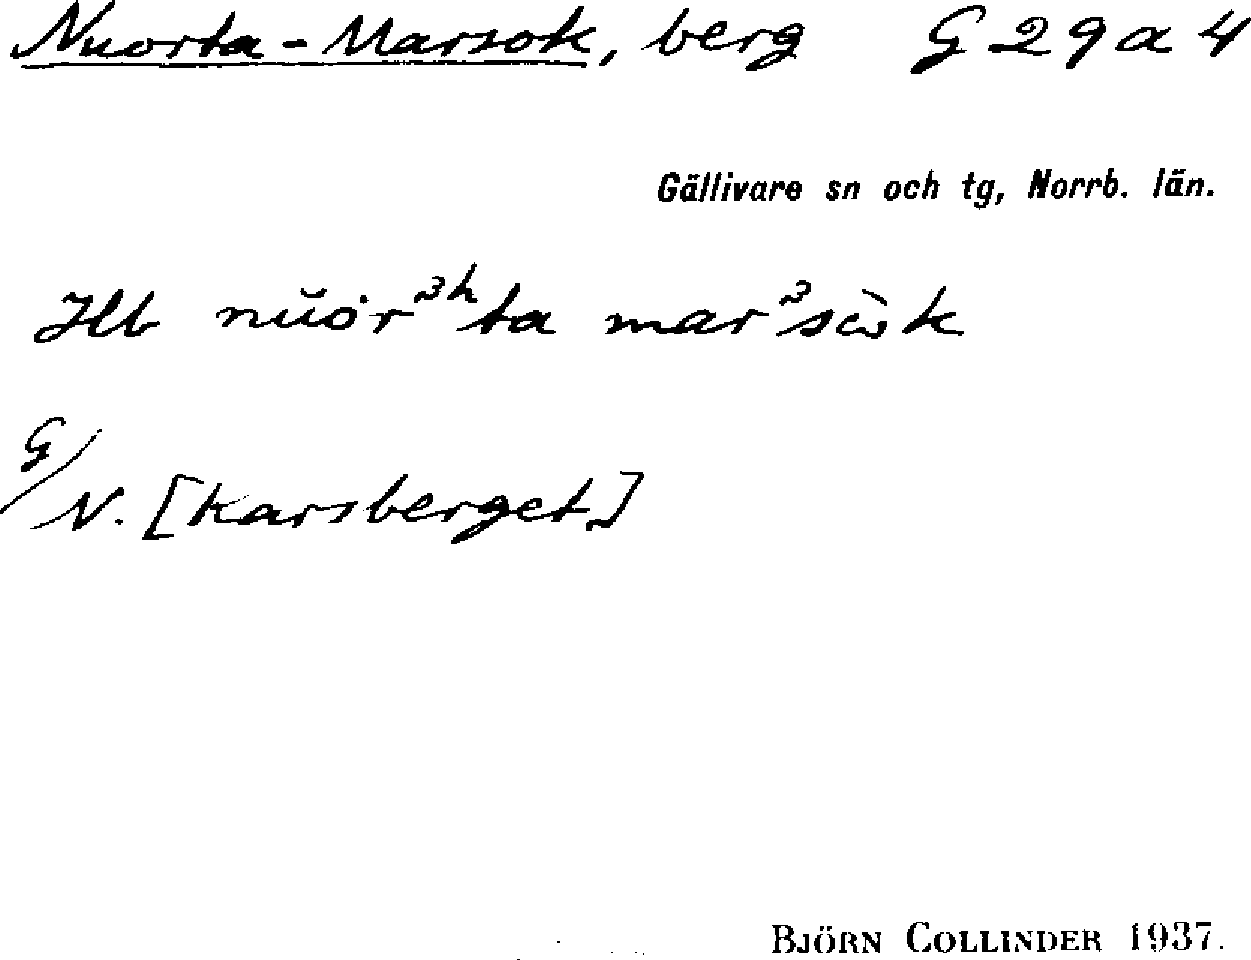 Nuorta-Marsok, berg G 29 a 4
Gällivare sn och tg, Norrb. län.
Hb nŭȯrᶾʰta marᶾsὼk
G/N. [Karsberget]
BJÖRN COLLINDER 1937.